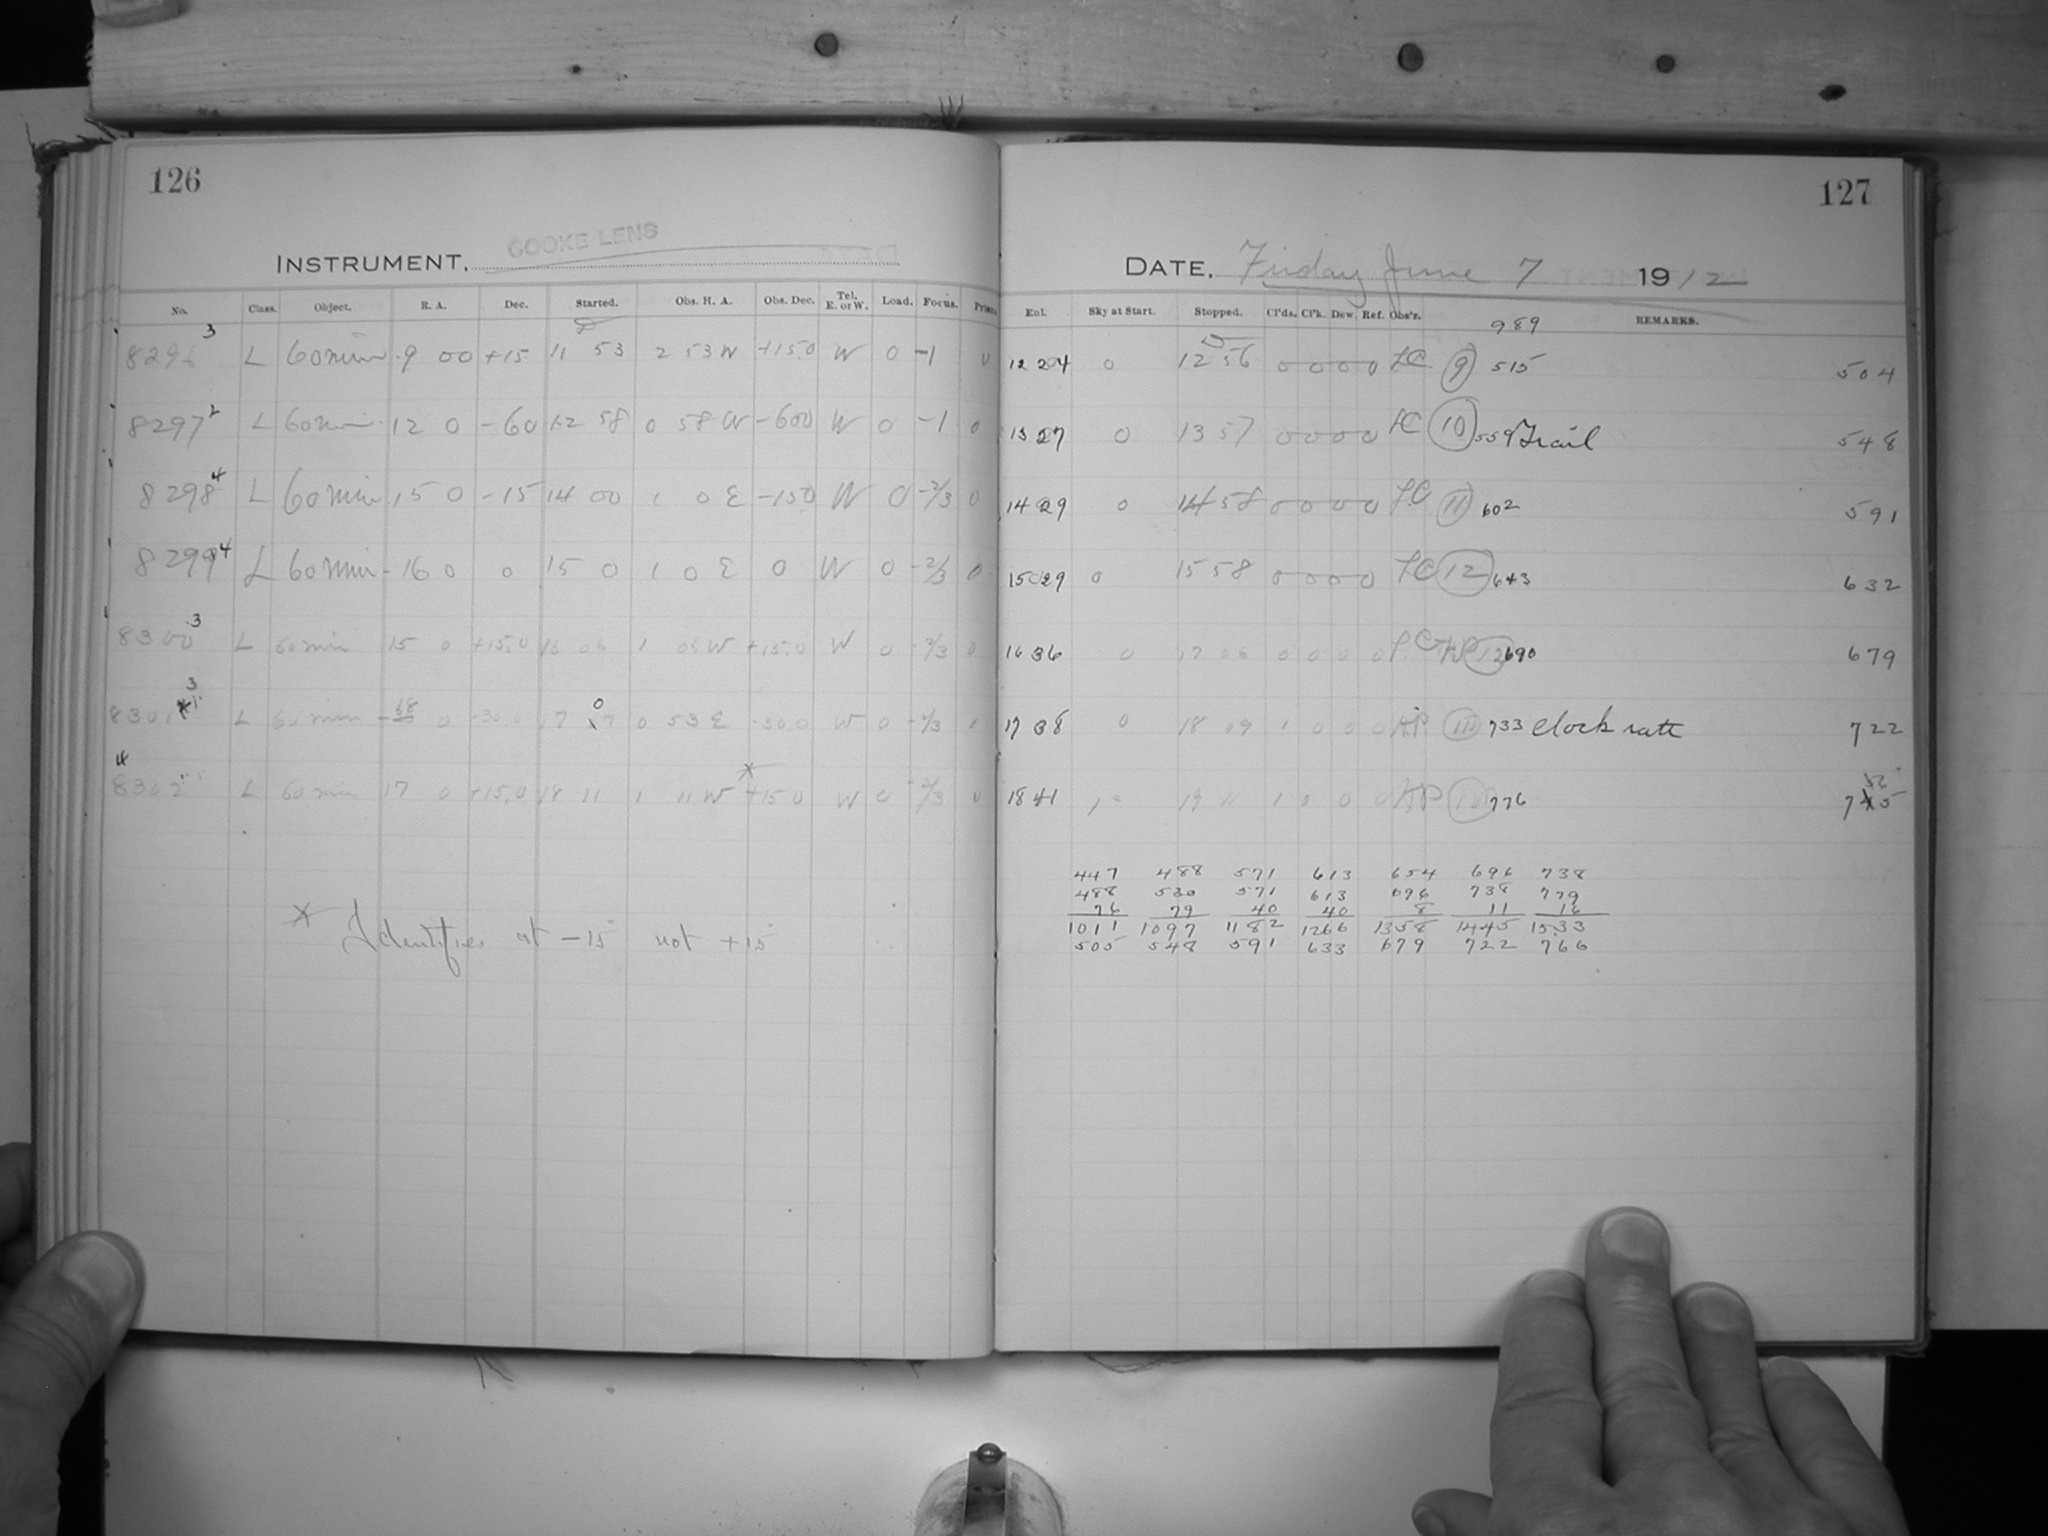 126
COOKE LENS
INSTRUMENT.
No. Class. Object. R. A. Dec. Started. Obs. H. A. Obs. Dec. Tel. E. or W. Load. Focus.
3
8296 L 60 min 9 00 +15 11 53 2 53 W +15 0 W 0 -1 0
8297 2 L 60 min 12 0 -60 12 58 0 58 W -60 0 W 0 -1 0
8298 4 L 60 min 15 0 -15 14 00 1 0 E -15 0 W 0 -2/3 0
8299 4 L 60 min 16 0 0 15 0 1 0 E 0 W 0 -2/3 0
8300 3 L 60 min 15 0 +15.0 16 06 1 06 W +15.0 W 0 -2/3 0
3
8301 * L 60 min 18 0 -30.0 17 07 0 53 E -30.0 W 0 -2/3 0
4
8302 L 60 min 17 0 +15.0 18 11 1 11 W * +15 0 W 0 -2/3 0
* Identifies at -15° not +15°
127
DATE. Friday June 7 1912
Ent. Sky at Start. Stopped. Cl'ds. Cl'k. Dew. Ref. Obs'r. REMARKS.
989
12 24 0 12 56 0 0 0 0 LC 9 515 504
13 27 0 13 57 0 0 0 0 LC 10 559 Trail 548
14 29 0 14 58 0 0 0 0 LC 11 602 591
15 29 0 15 58 0 0 0 0 LC 12 643 632
16 36 0 17 06 0 0 0 0 LC 12 690 679
17 38 0 18 09 1 0 0 0 AP 733 clock rate 722
18 41 19 11 1 0 0 0 AP 776
447 488 571 613 654 696 738
488 530 571 613 696 738 779
76 79 40 40 8 11 16
1011 1097 1182 1266 1358 1445 1533
505 548 591 633 679 722 766